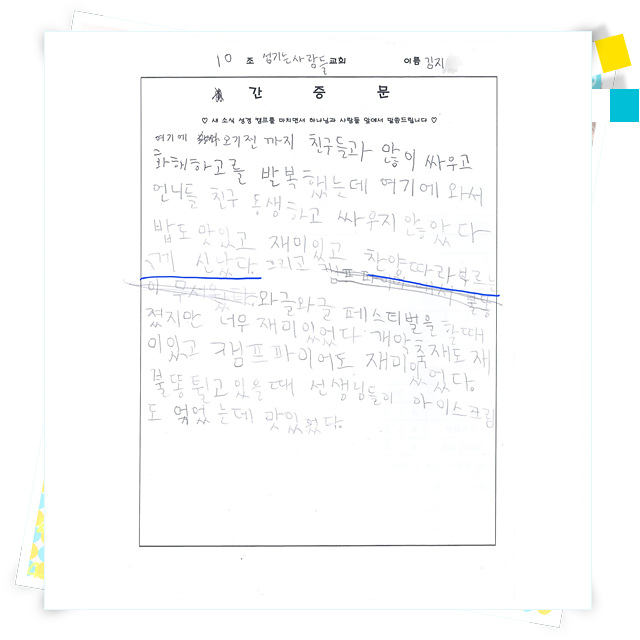 10 조 섬기는사람들교회 이름 김지
간 증 문
♡ 새 소식 성경 캠프를 마치면서 하나님과 사람들 앞에서 말씀드립니다 ♡
여기에 오기전 까지 친구들과 많이 싸우고
화해하고를 반복했는데 여기에 와서
언니들 친구 동생하고 싸우지 않았다
밥도 맛있고 재미있고 찬양따라부르는
게 신났다. 그리고 캠프 파이어
이 무서웠다. 와글와글 페스티벌을 할때
졌지만 너무 재미있었다 개막축제도 재
미있고 캠프파이어도 재미있었다.
불똥 튈고 있을 때 선생님들이 아이스크림
도 먹었는데 맛있었다.